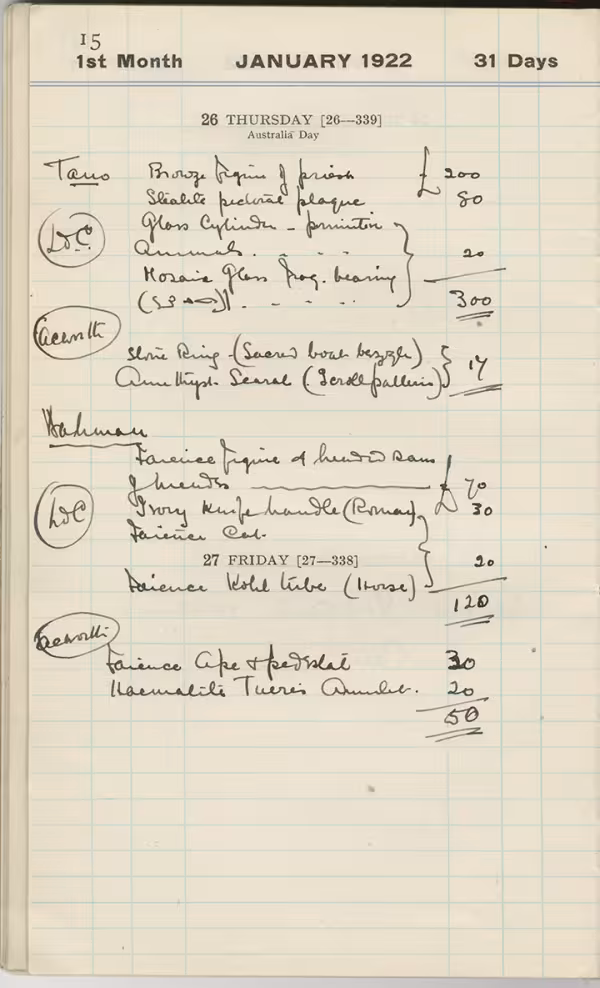 15
1st Month JANUARY 1922 31 Days
26 THURSDAY [26—339]
Australia Day
Tano Bronze figure of priest £ 200
Steatite pectoral plaque 80
Glass Cylinder - primitive
L. of C. Animals. . - - 20
Mosaic Glass frag. bearing
300
Acworth
Stone Ring - (Sacred boat bezzle)
Amethyst Scarab (Scroll pattern) 17
Hahman
Faience figure of headed Ram
of Mendes £ 70
L of C Ivory Knife handle (Roman) 30
Faience Cat.
27 FRIDAY [27—338] 20
Faience Kohl tube (Horse)
120
Acworth
Faience Ape & pedestal 30
Haematite Tueris Amulet. 20
50